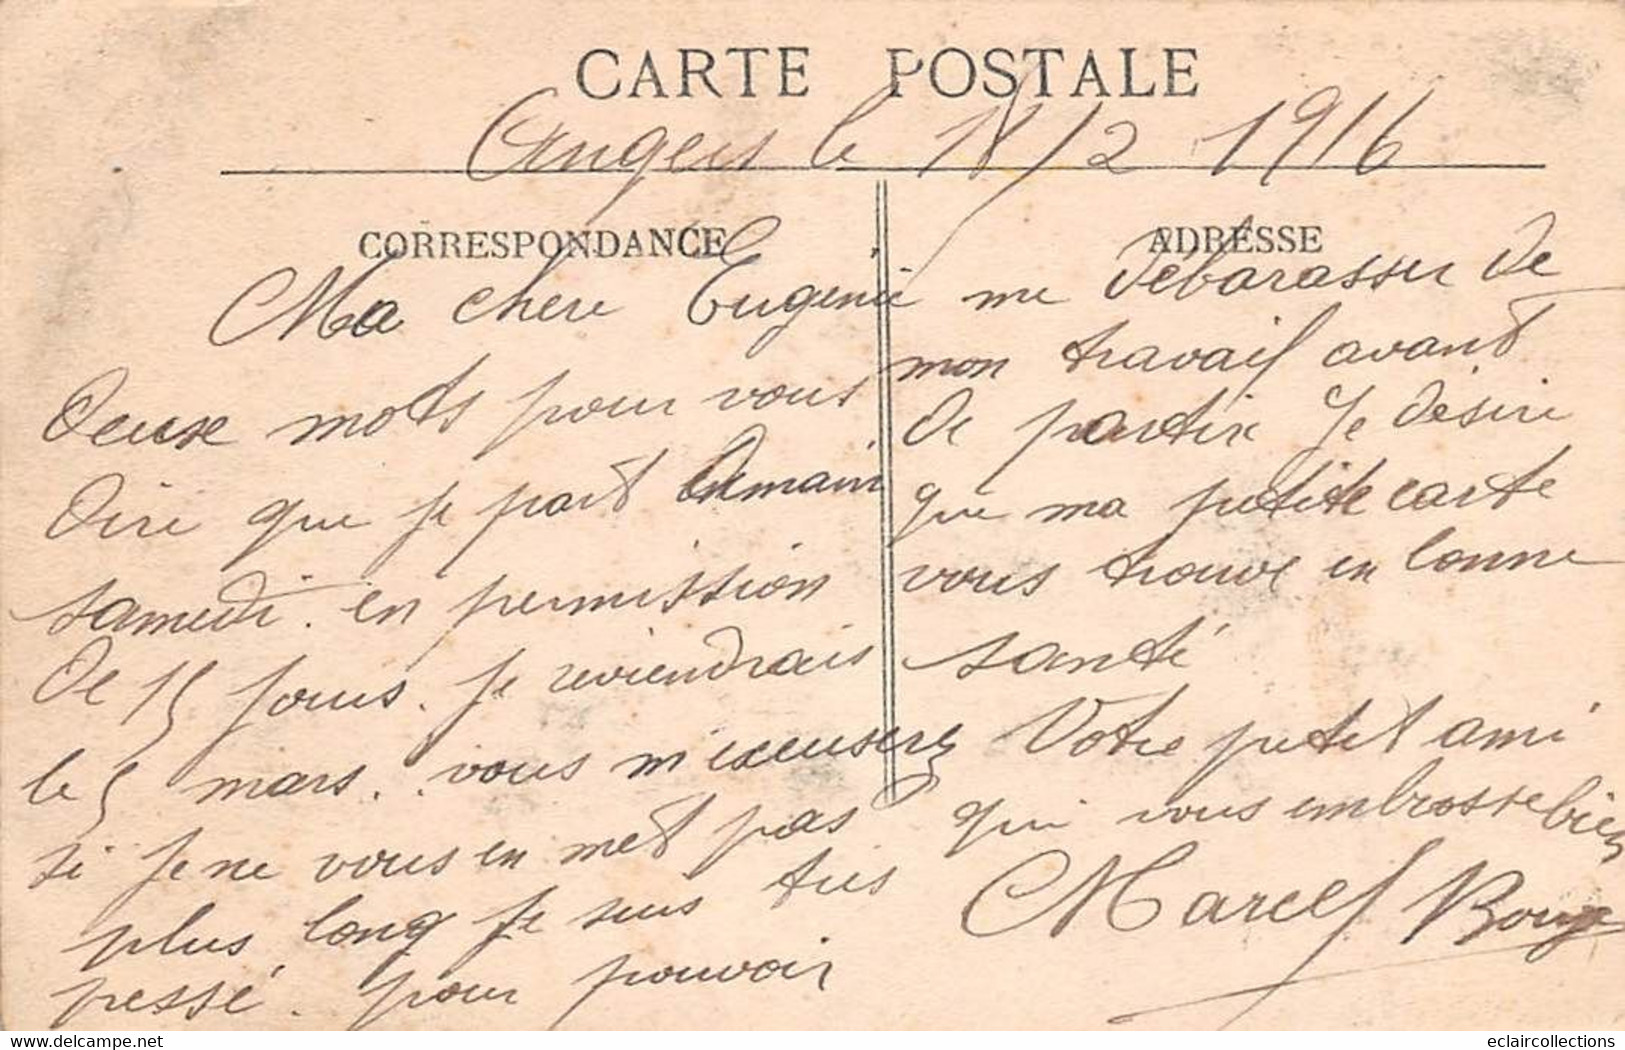 CARTE POSTALE
Angers le 18/2 1916
CORRESPONDANCE
Ma chere Eugenie
deuxe mots pour vous
dire que je part demain
samedi. en permission
de 15 jours. je reviendrais
le 5 mars. vous m'excuserez
si je ne vous en met pas
plus long je suis tres
pressé. pour pouvoir
ADRESSE
me débarasser de
mon travail avant
de partir Je désire
que ma petite carte
vous trouve en bonne
santé
Votre petit ami
qui vous embrasse bien
Marcel
eclaircollections